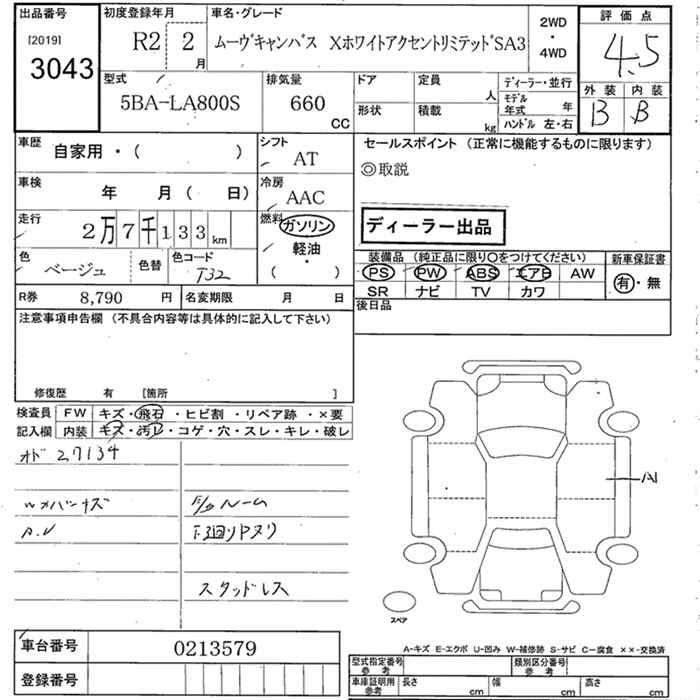 出品番号
[2019]
3043
初度登録年月
R2 2 月
車名・グレード
ムーヴキャンバス XホワイトアクセントリミテッドSA3
2WD
・
4WD
評価点
4.5
外装 内装
B B
型式
5BA-LA800S
排気量
660
CC
ドア
形状
定員
人
積載
kg
ディーラー・並行
モデル年式 年
ハンドル 左・右
車歴
自家用・( )
シフト
AT
車検
年 月 ( 日)
冷房
AAC
走行
2万7千133 km
燃料
ガソリン
・
軽油
・
( )
色
ベージュ
色替
色コード
T32
R券 8,790 円
名変期限 月 日
セールスポイント (正常に機能するものに限ります)
◎取説
ディーラー出品
装備品 (純正品に限り〇をつけてください)
PS PW ABS エアB AW
SR ナビ TV カワ
新車保証書
有・無
後日品
注意事項申告欄 (不具合内容等は具体的に記入して下さい)
修復歴 有 [箇所 ]
検査員
記入欄
FW キズ・飛石・ヒビ割・リペア跡・×要
内装 キズ・汚レ・コゲ・穴・スレ・キレ・破レ
オド 27134
A.V
ルーム
下廻りPヌリ
スタッドレス
A1
スペア
A-キズ E-エクボ U-凹み W-補修跡 S-サビ C-腐食 ××-交換済
車台番号 0213579
登録番号
型式指定番号
参考
類別区分番号
参考
車庫証明用
参考
長さ cm
幅 cm
高さ cm